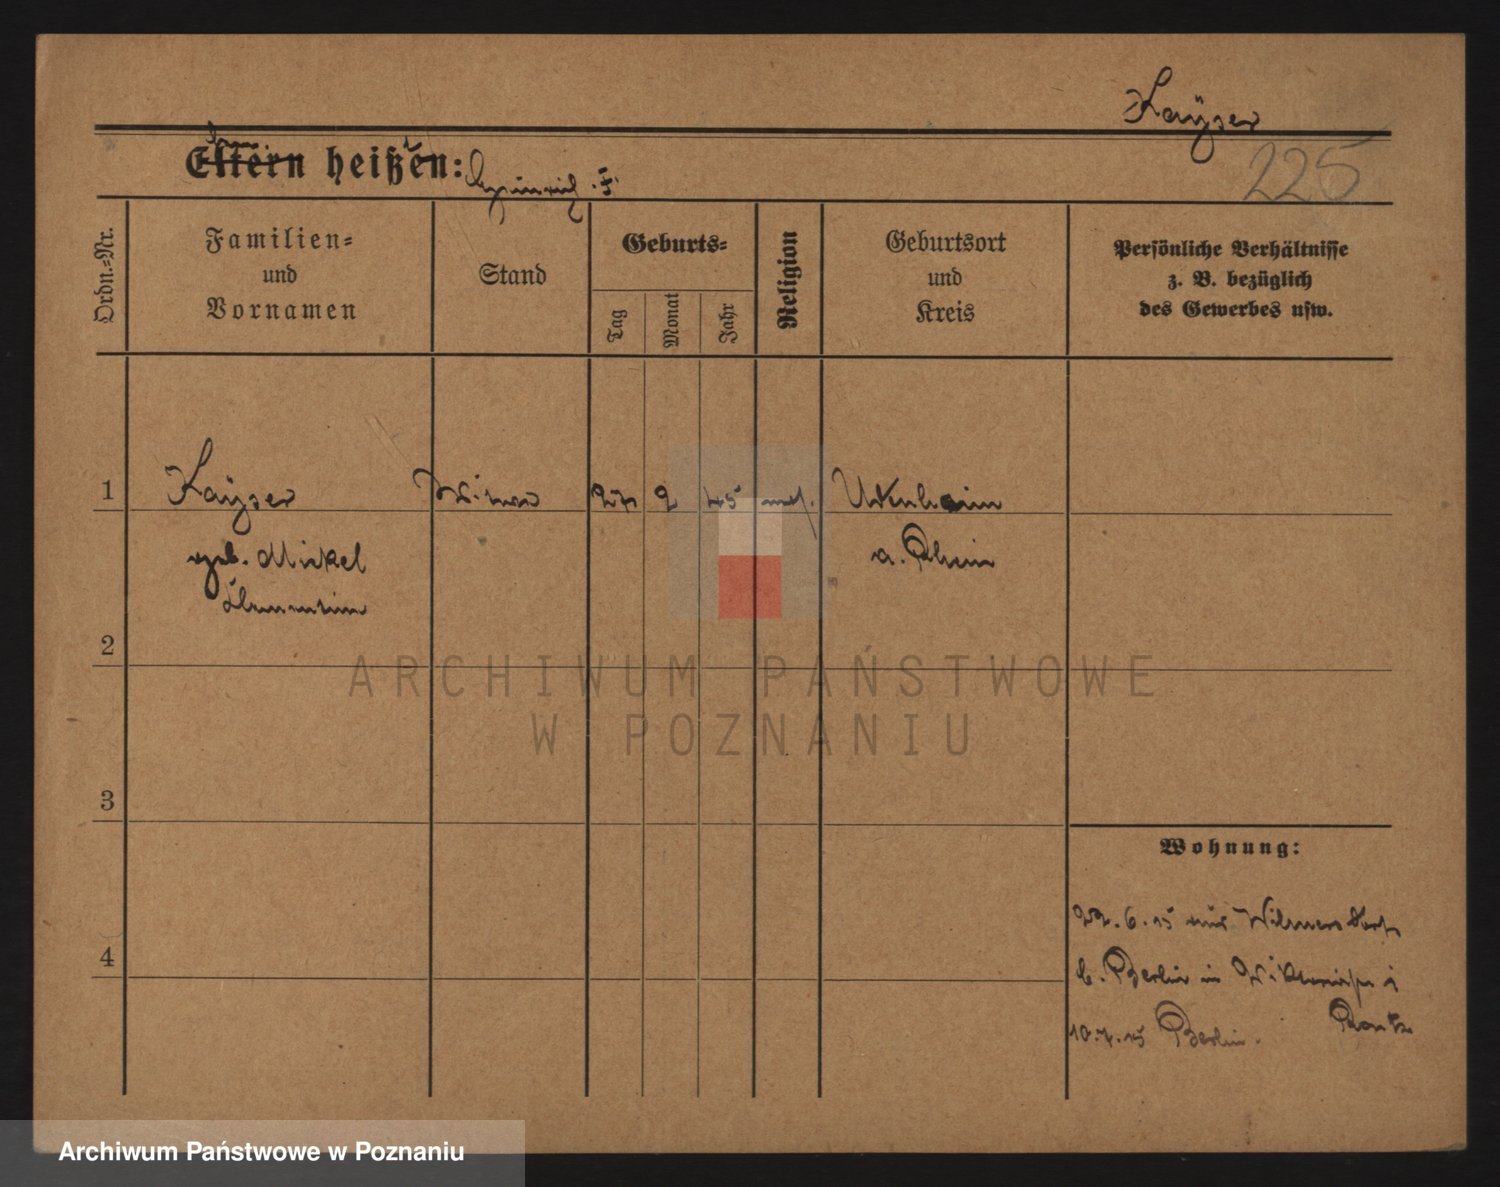 Kaÿser
Eltern heißen: Heinrich. †.
225
Ordn.=Nr.
Familien=
und
Vornamen
Stand
Geburts=
Tag
Monat
Jahr
Religion
Geburtsort
und
Kreis
Persönliche Verhältnisse
z. B. bezüglich
des Gewerbes usw.
1
Kaÿser
Witwe
27
2
45
a. Rhein
geb. Mickel
2
3
4
Wohnung:
22.6.15 aus Wilmersdorf
b. Berlin in
10.7.15 Berlin.
ARCHIWUM PAŃSTWOWE
W POZNANIU
Archiwum Państwowe w Poznaniu